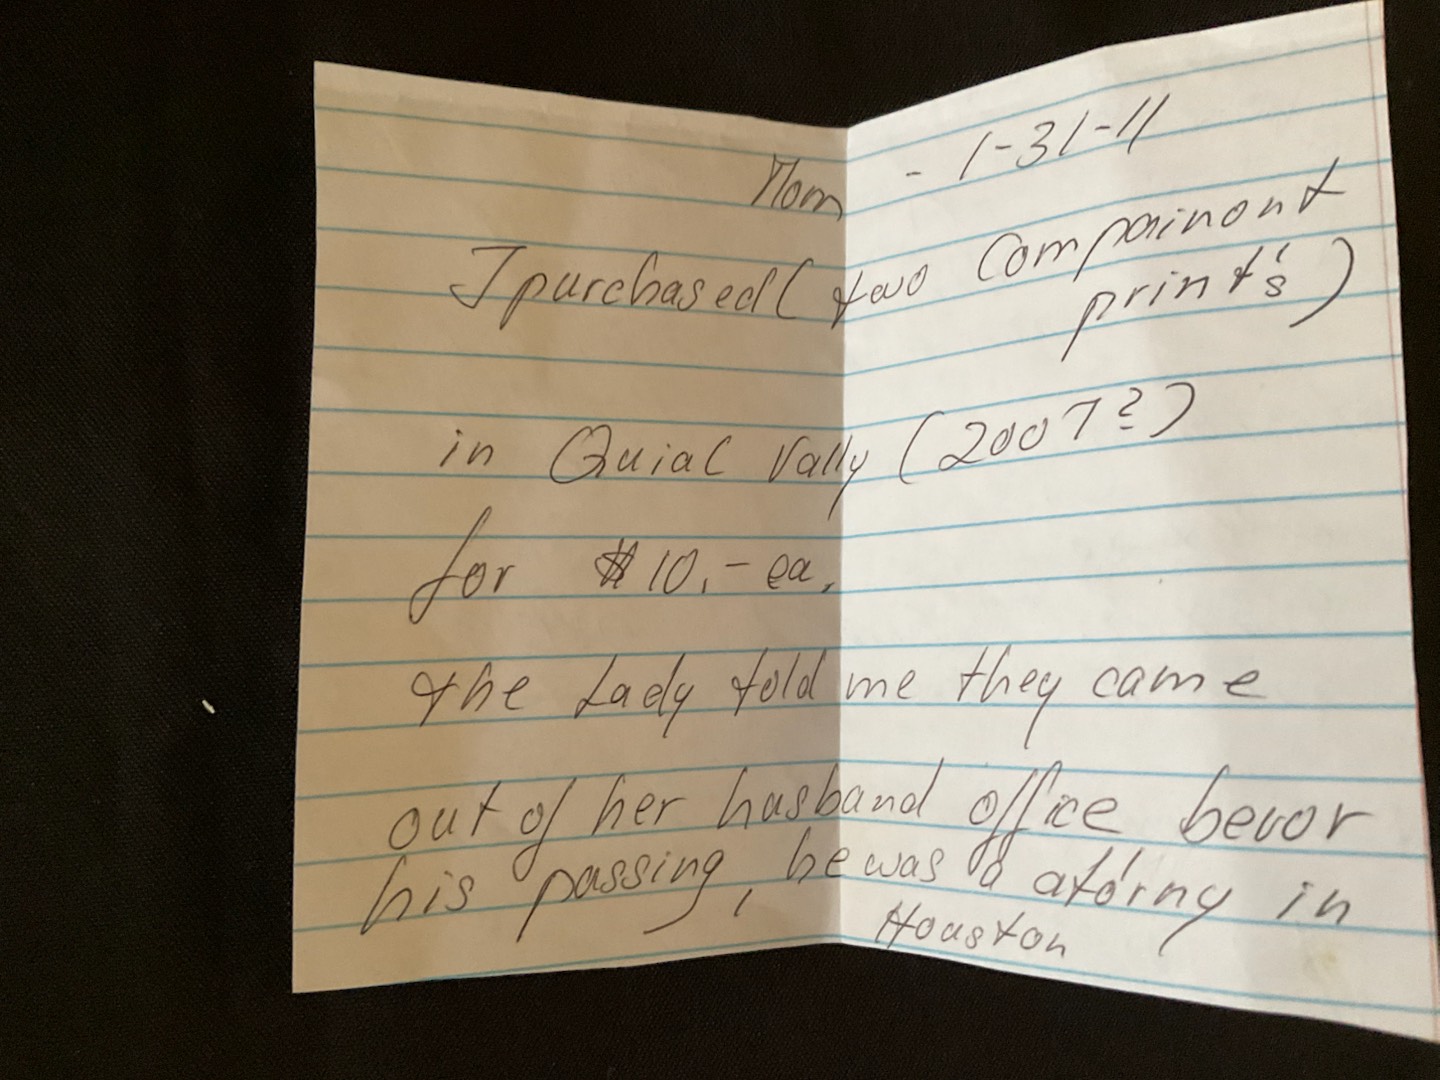 Mom - 1-31-11
I purchased (two Compainont
print's)
in Quial Vally (2007?)
for $10.- ea.
the Lady told me they came
out of her husband office bevor
his passing, he was a atórny in
Houston